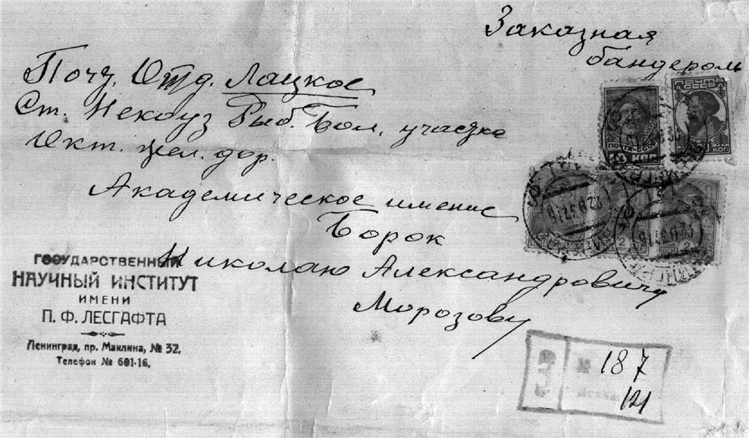 Заказная
бандероль
Почт. Отд. Лацкое
Ст. Некоуз Рыб. Бол. участка
Окт. жел. дор.
Академическое имение
Борок
Николаю Александровичу
Морозову
ГОСУДАРСТВЕННЫЙ
НАУЧНЫЙ ИНСТИТУТ
ИМЕНИ
П. Ф. ЛЕСГАФТА
Ленинград, пр. Маклина, № 32.
Телефон № 601-16.
КОП
З
№ 187
121